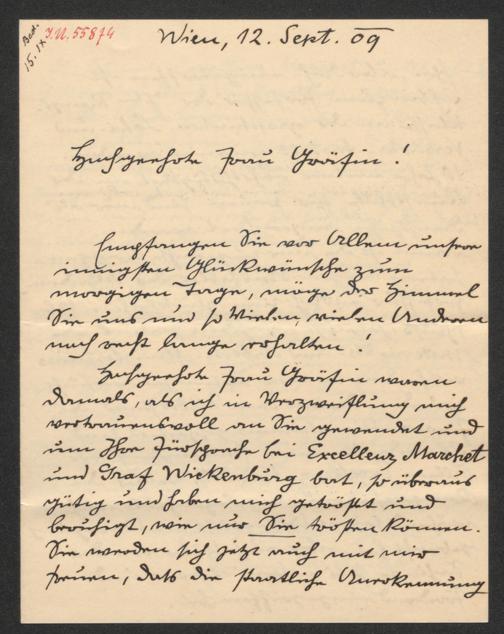 Bed.
15. IX
I.N. 55874
Wien, 12. Sept. 09
Hochgeehrte Frau Gräfin!
Empfangen Sie vor Allem unsere
innigsten Glückwünsche zum
morgigen Tage, möge der Himmel
Sie uns und so Vielen, vielen Anderen
noch recht lange erhalten!
Hochgeehrte Frau Gräfin waren
damals, als ich in Verzweiflung mich
vertrauensvoll an Sie gewendet und
um Ihre Fürsprache bei Excellenz Marchet
und Graf Wickenburg bat, so überaus
gütig und haben mich getröstet und
beruhigt, wie nur Sie trösten können.
Sie werden sich jetzt auch mit mir
freuen, dass die staatliche Anerkennung